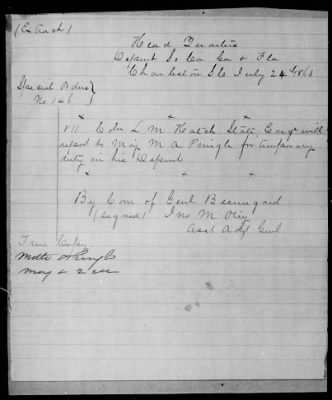 (Extract)
Head Quarters
Depart So Ca Ga & Fla
Charleston July 24th 1863
Special Orders
No 148
VII Col L. M. Hatch State Engr will
report to Maj M A Pringle for temporary
duty in his Depart
By Com of Genl Beauregard
(signed) Jno M Otey
Asst Adjt Genl
True Copy
Maj &